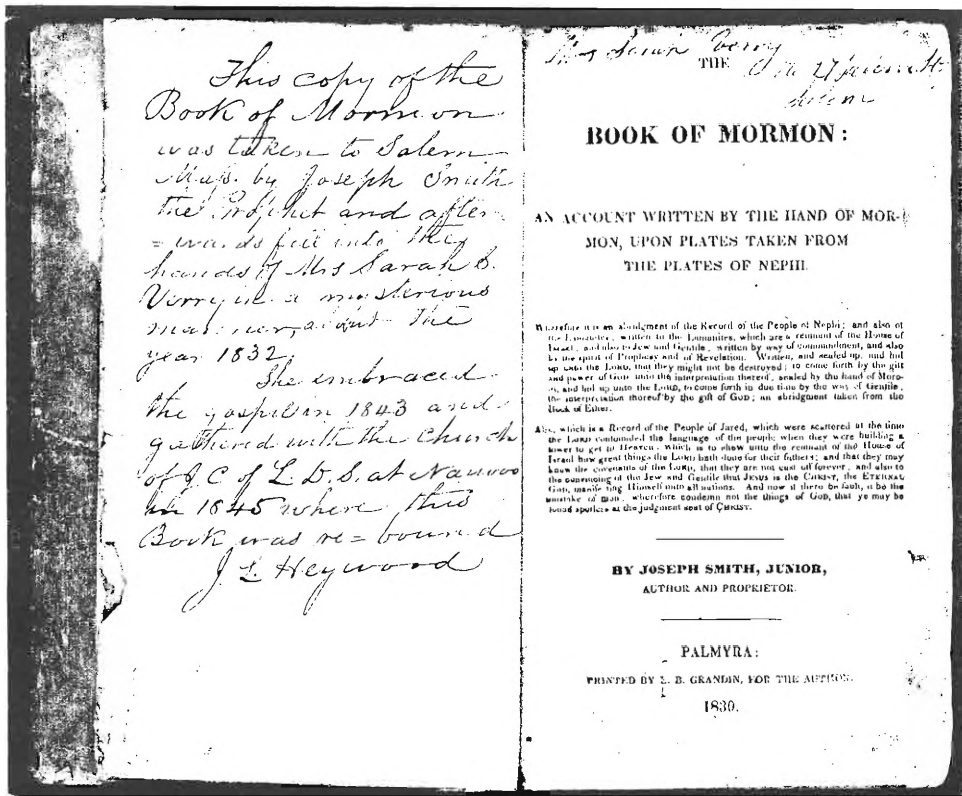 This copy of the
Book of Mormon
was taken to Salem
Mass. by Joseph Smith
the Prophet and after-
=wards fell into the
hands of Mrs Sarah S.
Verry in a mysterious
manner, about the
year 1832,
She embraced
the gospel in 1843 and
gathered with the Church
of J. C. of L. D. S. at Nauvoo
in 1845 where this
Book was re=bound
J L Heywood
Mrs Sarah
Salem
THE
BOOK OF MORMON:
AN ACCOUNT WRITTEN BY THE HAND OF MOR-
MON, UPON PLATES TAKEN FROM
THE PLATES OF NEPHI.
Wherefore it is an abridgment of the Record of the People of Nephi; and also of
the Lamanites; written to the Lamanites, which are a remnant of the House of
Israel; and also to Jew and Gentile; written by way of commandment, and also
by the spirit of Prophecy and of Revelation. Written, and sealed up, and hid
up unto the LORD, that they might not be destroyed; to come forth by the gift
and power of GOD, unto the interpretation thereof; sealed by the hand of Moro-
ni, and hid up unto the LORD, to come forth in due time by the way of Gentile;
the interpretation thereof by the gift of GOD; an abridgment taken from the
Book of Ether.
Also, which is a Record of the People of Jared, which were scattered at the time
the LORD confounded the language of the people when they were building a
tower to get to Heaven: which is to shew unto the remnant of the House of
Israel how great things the LORD hath done for their fathers; and that they may
know the covenants of the LORD, that they are not cast off forever; and also to
the convincing of the Jew and Gentile that JESUS is the CHRIST, the ETERNAL
GOD, manifesting Himself unto all nations. And now if there be fault, it be the
mistake of men; wherefore condemn not the things of GOD, that ye may be
found spotless at the judgment seat of CHRIST.
BY JOSEPH SMITH, JUNIOR,
AUTHOR AND PROPRIETOR.
PALMYRA:
PRINTED BY E. B. GRANDIN, FOR THE AUTHOR.
1830.